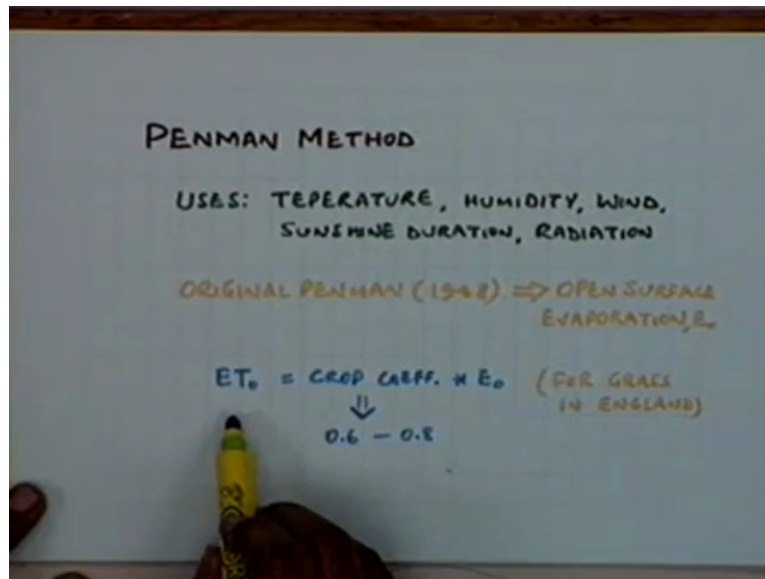 PENMAN METHOD
USES: TEPERATURE, HUMIDITY, WIND,
SUNSHINE DURATION, RADIATION
ORIGINAL PENMAN (1948) ⇒ OPEN SURFACE
EVAPORATION, E₀
ET₀ = CROP COEFF. * E₀ (FOR GRASS
IN ENGLAND)
⇓
0.6 - 0.8